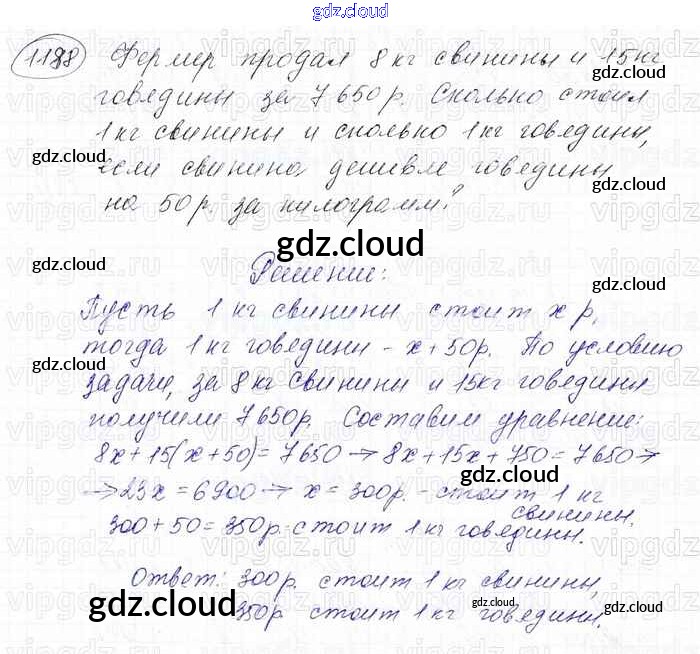 gdz.cloud
1188 Фермер продал 8 кг свинины и 15 кг
говядины за 7650 р. Сколько стоил
1 кг свинины и сколько 1 кг говядины,
если свинина дешевле говядины
на 50 р. за килограмм?
Решение:
Пусть 1 кг свинины стоит x р,
тогда 1 кг говядины - x+50р. По условию
задачи, за 8 кг свинины и 15кг говядины
получили 7650р. Составим уравнение:
8x+15(x+50)=7650 → 8x+15x+750=7650→
→23x=6900→ x=300р. - стоит 1 кг
свинины.
300+50=350р.-стоит 1 кг говядины.
Ответ: 300р. стоит 1 кг свинины,
350р стоит 1 кг говядины.
gdz.cloud